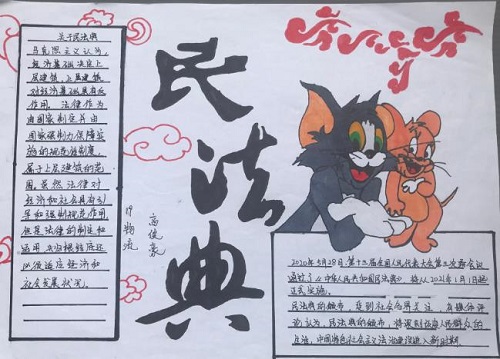 关于民法典
马克思主义认为,
经济基础决定上
层建筑,上层建筑
对经济基础具有反
作用。法律作为
由国家制定并由
国家强制力保障实
施的规范性制度,
属于上层建筑的范
围。虽然法律对
经济和社会具有引
导和强制规范作用,
但是法律的制定和
适用
以便适应经济和
社会发展状况。
民法典
高俊豪
2020年5月28日,第十三届全国人民代表大会第三次会议
通过了《中华人民共和国民法典》将从2021年1月1日起
正式实施。
民法典的颁布,受到社会各界关注
认为,民法典的颁布,将深刻影响人民群众的
生活,中国特色社会主义法治建设进入新时期